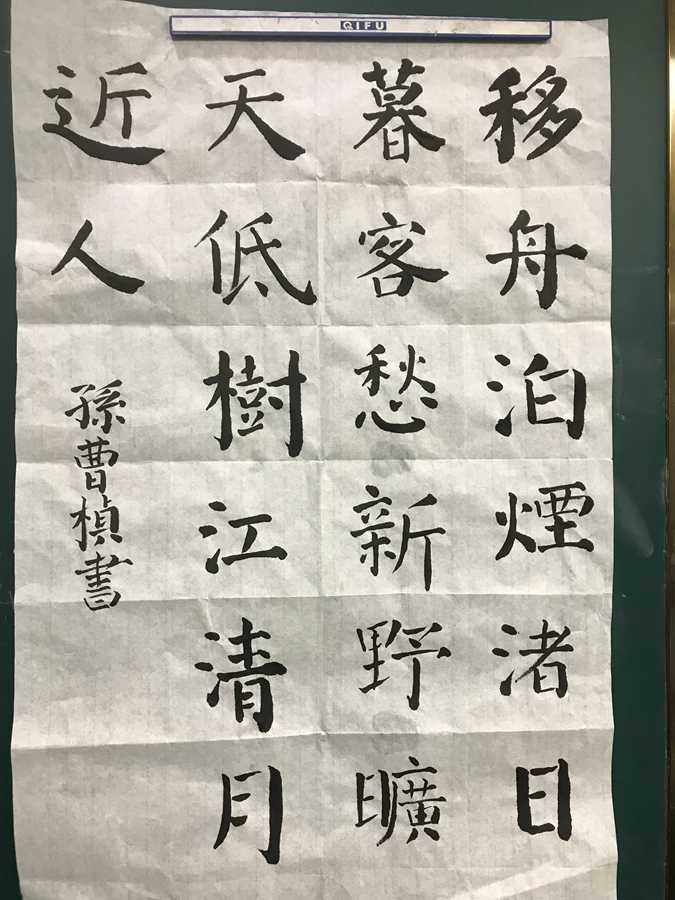 QIFU
移舟泊煙渚日
暮客愁新野曠
天低樹江清月
近人
孫曹楨書